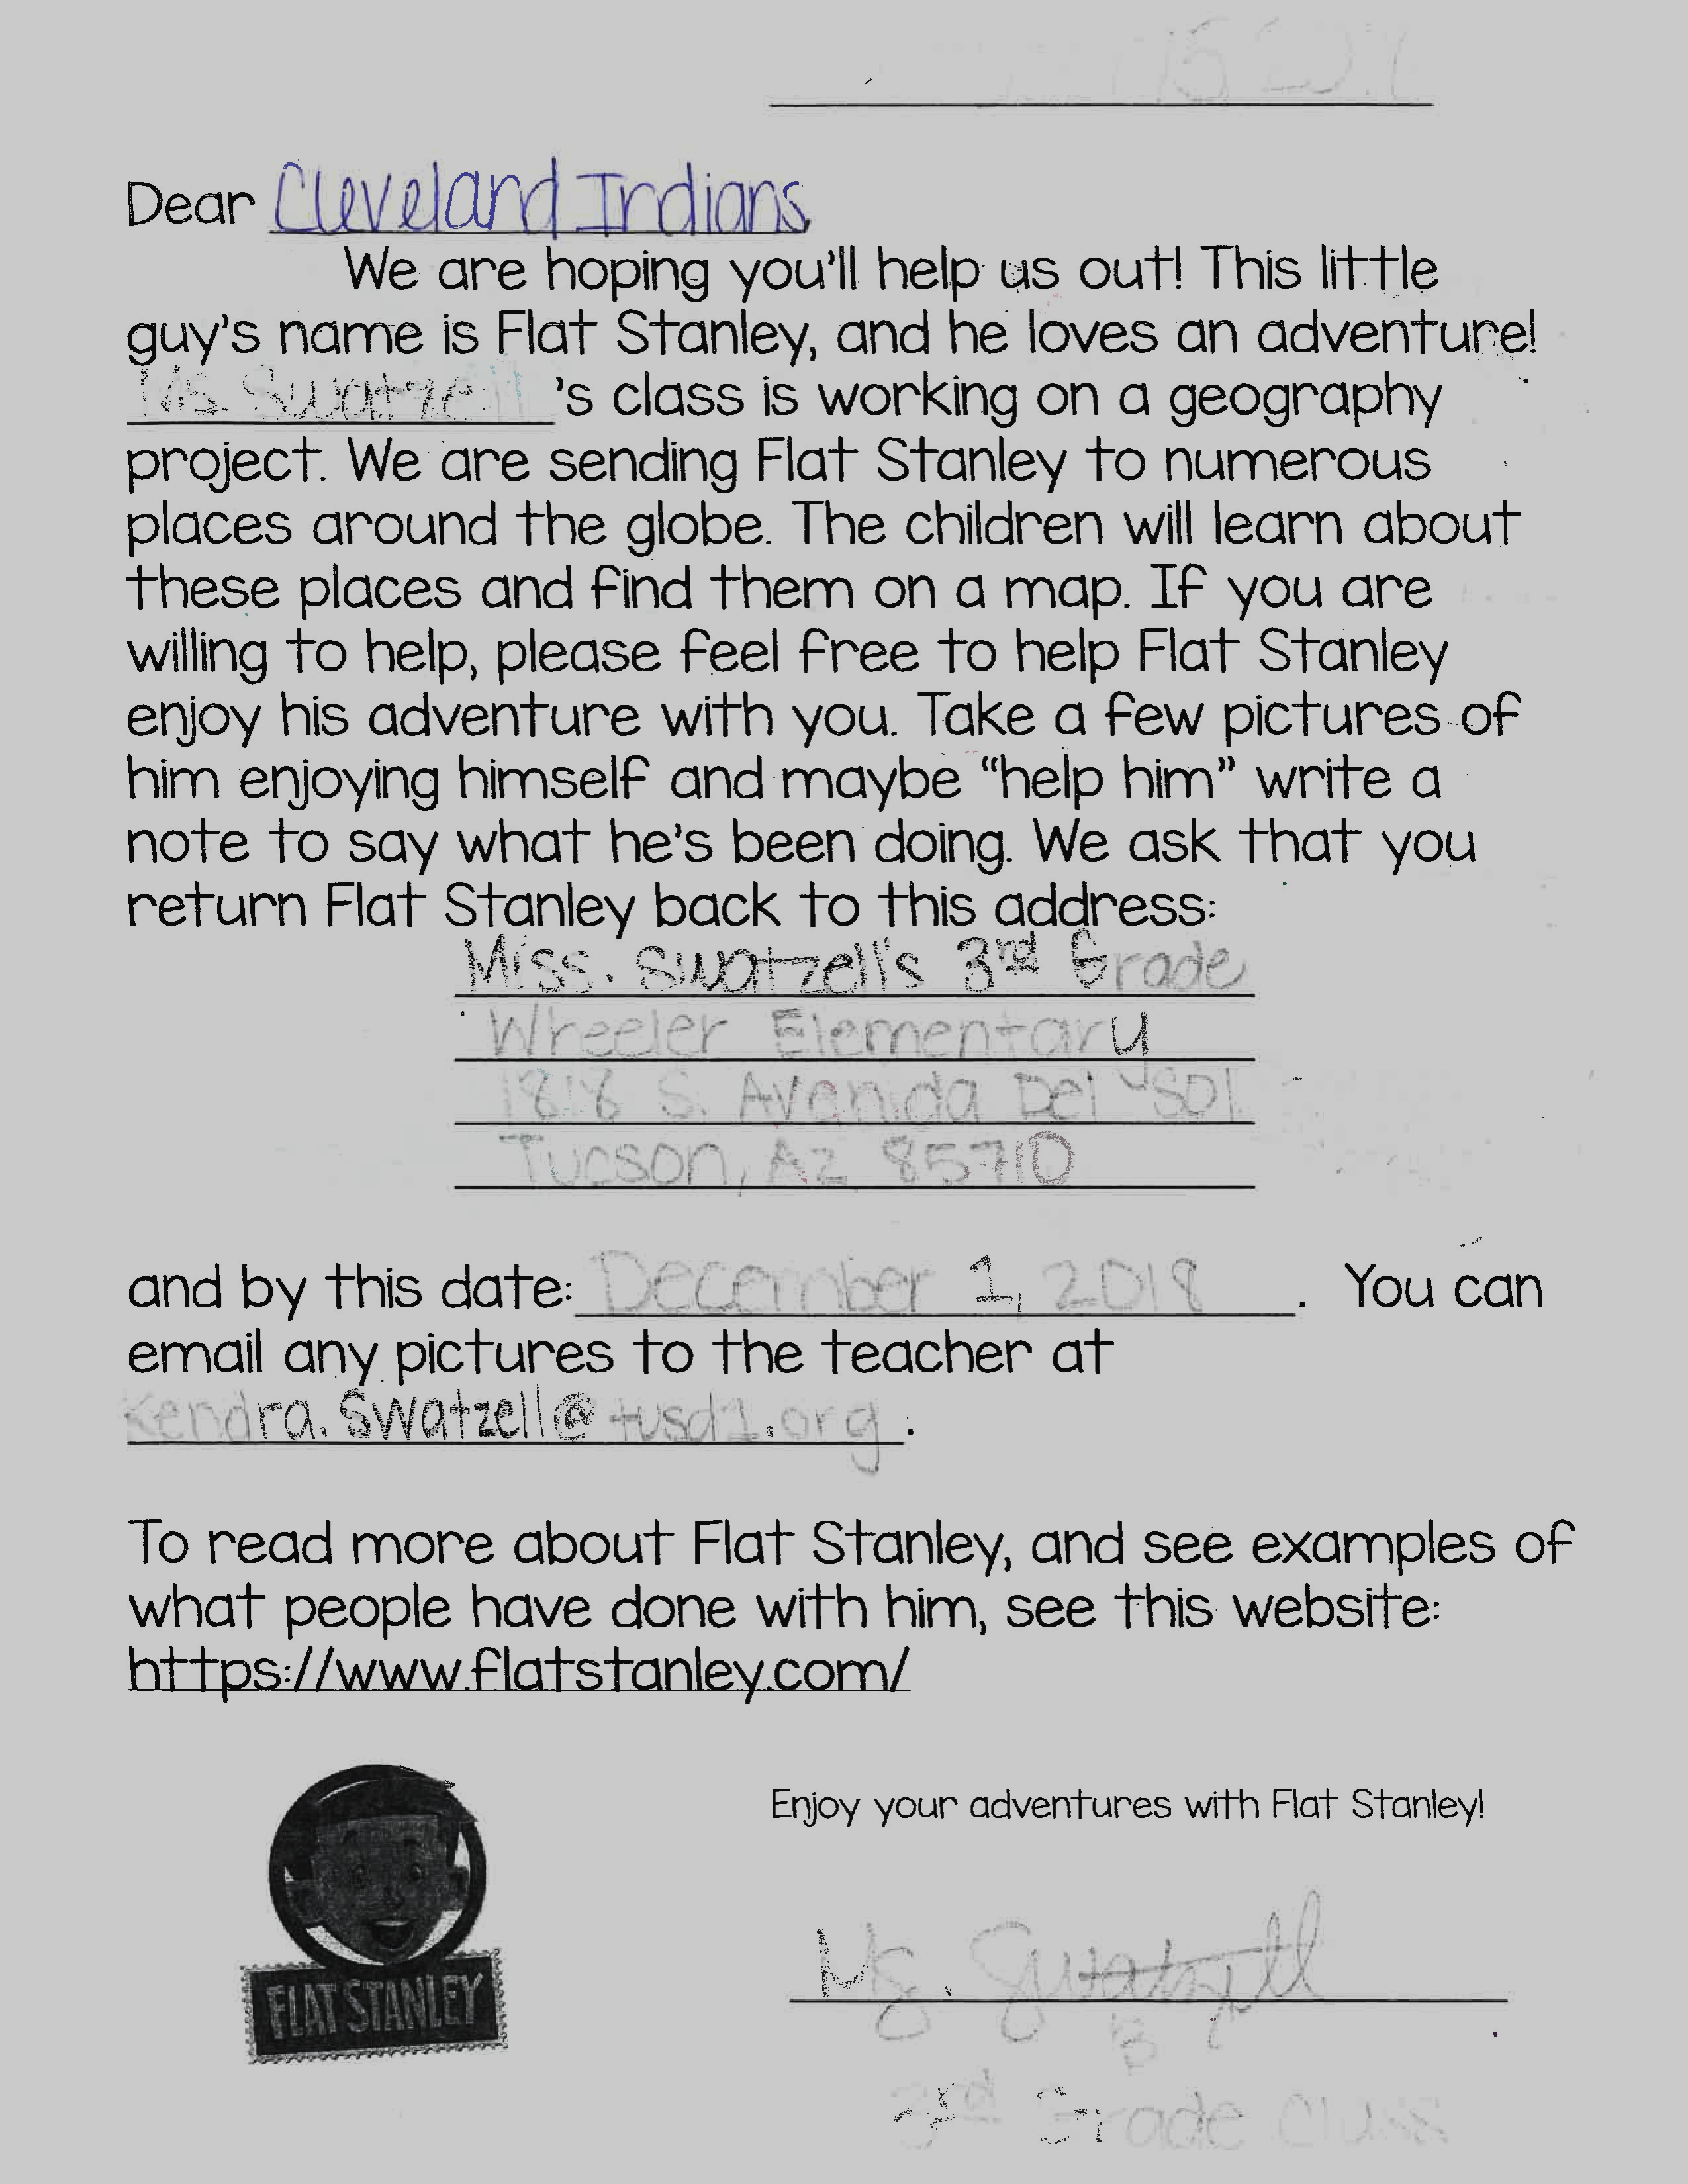 Dear Cleveland Indians,
We are hoping you'll help us out! This little
guy's name is Flat Stanley, and he loves an adventure!
Ms. Swatzell's class is working on a geography
project. We are sending Flat Stanley to numerous
places around the globe. The children will learn about
these places and find them on a map. If you are
willing to help, please feel free to help Flat Stanley
enjoy his adventure with you. Take a few pictures of
him enjoying himself and maybe “help him” write a
note to say what he's been doing. We ask that you
return Flat Stanley back to this address:
Miss. Swatzell's 3rd Grade
Wheeler Elementary
1818 S. Avenida Del Sol
Tucson, Az 85710
and by this date: December 1, 2018. You can
email any pictures to the teacher at
Kendra.Swatzell@tusd1.org.
To read more about Flat Stanley, and see examples of
what people have done with him, see this website:
https://www.flatstanley.com/
Enjoy your adventures with Flat Stanley!
FLAT STANLEY
Ms. Swatzell
3rd Grade Class